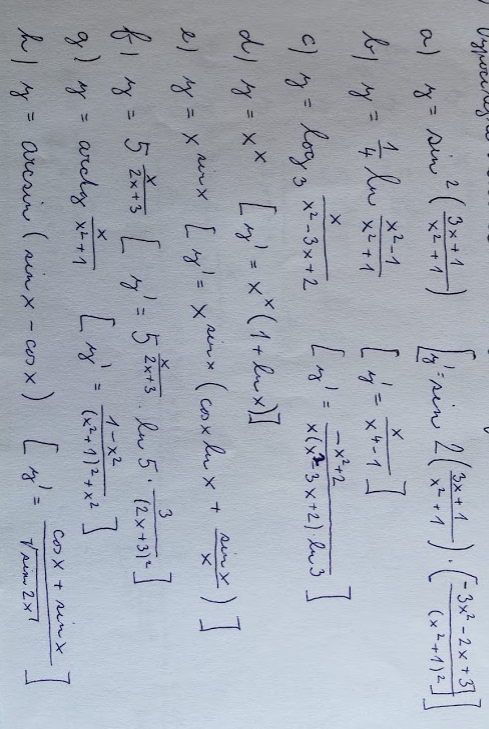 a) y = sin² ( (3x+1)/(x²+1) ) [ y' = sin 2( (3x+1)/(x²+1) ) · ( (-3x²-2x+3)/(x²+1)² ) ]
b) y = 1/4 ln (x²-1)/(x²+1) [ y' = x/(x⁴-1) ]
c) y = log₃ x/(x²-3x+2) [ y' = (-x²+2)/(x(x²-3x+2) ln 3) ]
d) y = x^x [ y' = x^x (1 + ln x) ]
e) y = x^(sin x) [ y' = x^(sin x) (cos x ln x + (sin x)/x ) ]
f) y = 5^(x/(2x+3)) [ y' = 5^(x/(2x+3)) · ln 5 · 3/(2x+3)² ]
g) y = arctg x/(x²+1) [ y' = (1-x²)/((x²+1)²+x²) ]
h) y = arcsin (sin x - cos x) [ y' = (cos x + sin x)/√(sin 2x) ]